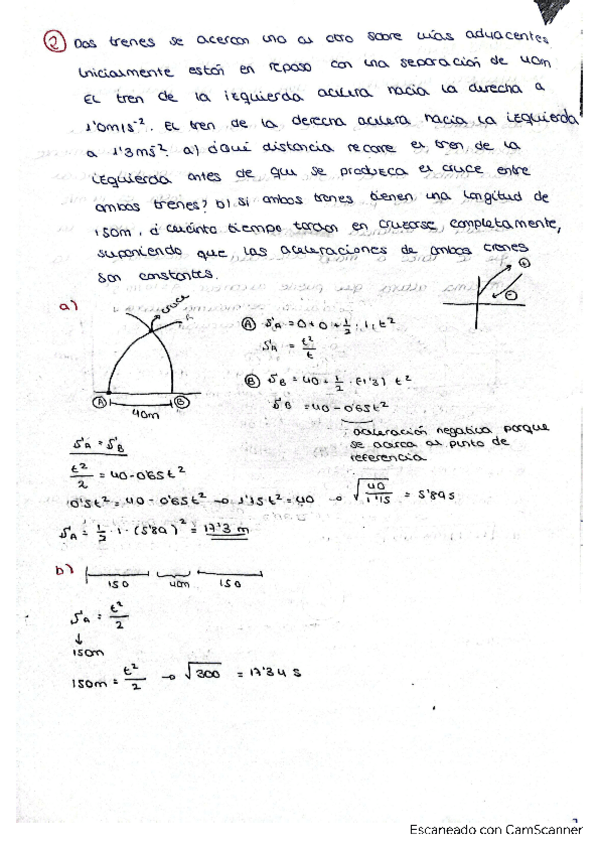 2 Dos trenes se acercan uno al otro sobre vías adyacentes
Inicialmente están en reposo con una separación de 40m
El tren de la izquierda acelera hacia la derecha a
1'0m/s⁻². El tren de la derecha acelera hacia la izquierda
a 1'3ms². a) ¿Qué distancia recorre el tren de la
izquierda antes de que se produzca el cruce entre
ambos trenes? b) Si ambos trenes tienen una longitud de
150m, ¿cuánto tiempo tardan en cruzarse completamente,
suponiendo que las aceleraciones de ambos trenes
son constantes.
a)
cruce
A B
40m
+
-
A SA = 0 + 0 + 1/2 · 1, t²
SA = t²/t
B SB = 40 + 1/2 · (-1'3) t²
SB = 40 - 0'65t²
aceleración negativa porque
se acerca al punto de
referencia
SA = SB
t²/2 = 40 - 0'65t²
0'5t² = 40 - 0'65t² → 1'15t² = 40 → √40/1'15 = 5'89s
SA = 1/2 · 1 · (5'89)² = 17'3 m
b)
150 40m 150
SA = t²/2
↓
150m
150m = t²/2 → √300 = 17'34 s
Escaneado con CamScanner